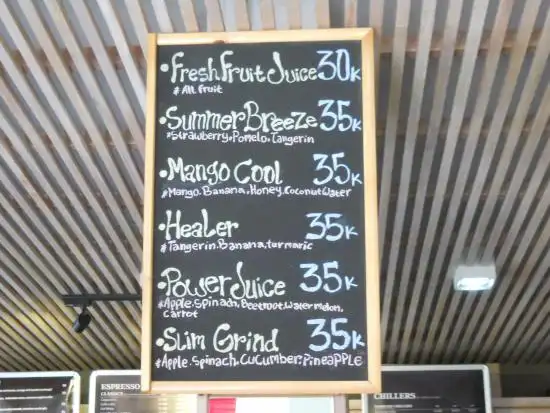 • Fresh Fruit Juice 30K
# All fruit
• Summer Breeze 35K
# Strawberry, Pomelo, Tangerin
• Mango Cool 35K
# Mango, Banana, Honey, Coconut Water
• Healer 35K
# Tangerin, Banana, turmaric
• Power Juice 35K
# Apple, Spinach, Beetroot, Watermelon,
Carrot
• Slim Grind 35K
# Apple, Spinach, Cucumber, Pineapple
ESPRESSO
CLASSICS
CHILLERS